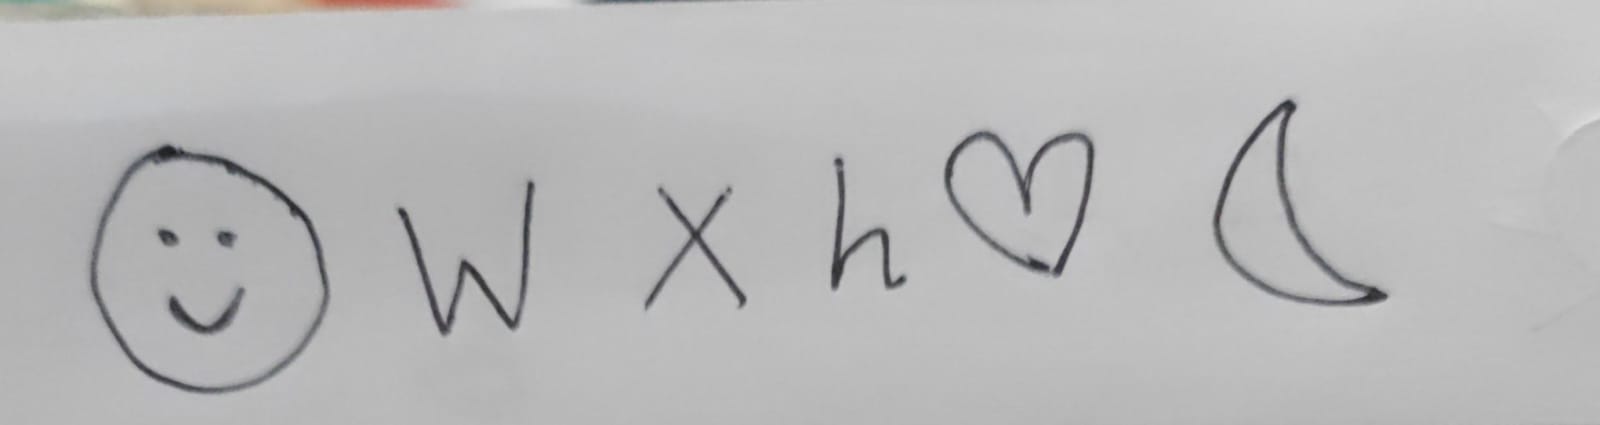 ☺ W X h ♡ ☾